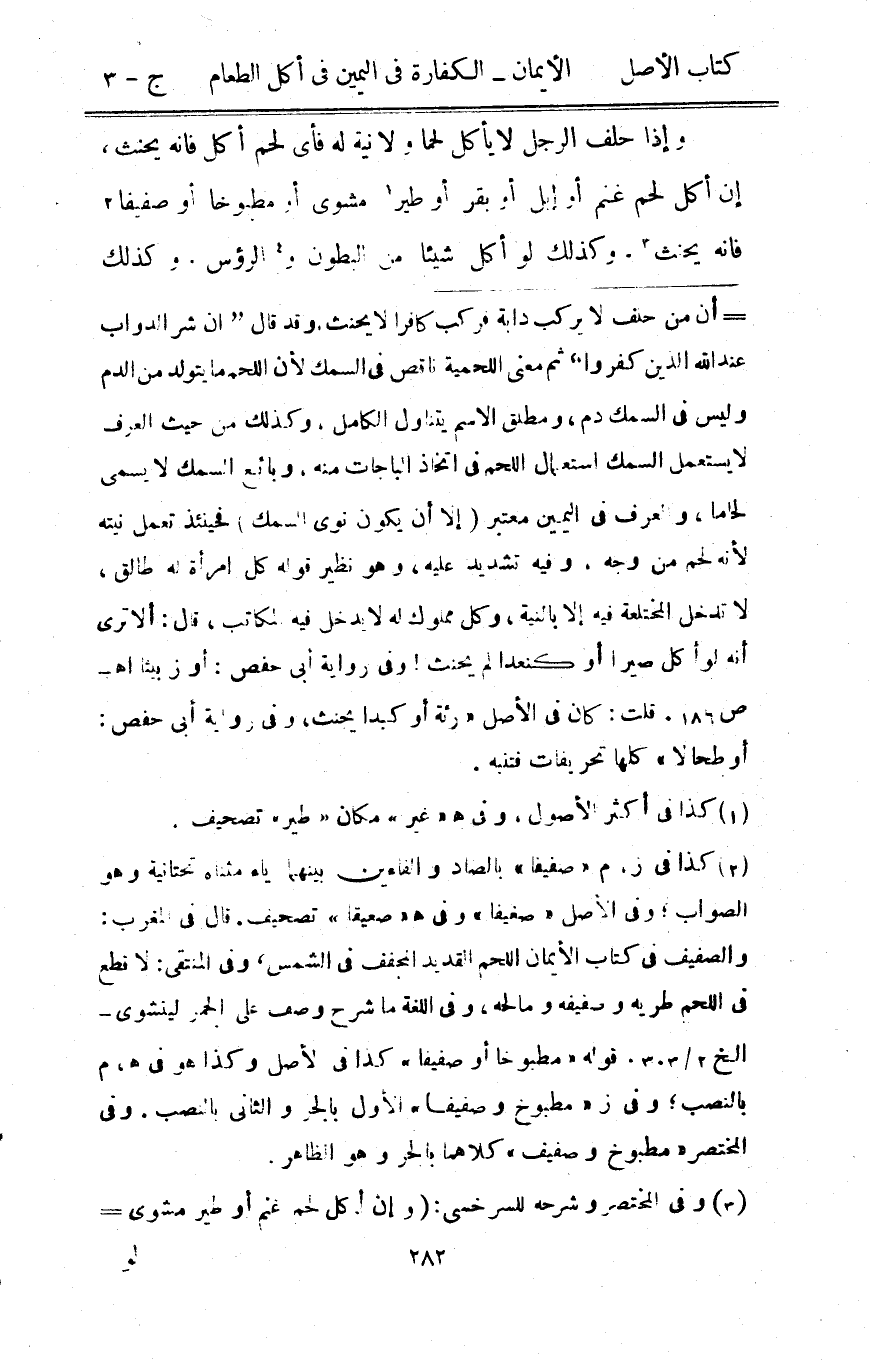 كتاب الأصل الأيمان ــ الكفارة فى اليمين فى أكل الطعام ج - ٣
و إذا حلف الرجل لا يأكل لحما و لا نية له فأى لحم أكل فانه يحنث ،
إن أكل لحم غنم أو إبل أو بقر أو طير١ مشوى أو مطبوخا أو صفيفا٢
فانه يحنث٣ . وكذلك لو أكل شيئا من البطون و٤ الرؤس . و كذلك
= أن من حلف لا يركب دابة فركب كافرا لا يحنث، وقد قال ” ان شر الدواب
عند الله الذين كفروا “ ثم معنى اللحمية ناقص فى السمك لأن اللحم ما يتولد من الدم
و ليس فى السمك دم ، و مطلق الاسم يتناول الكامل ، وكذلك من حيث العرف
لا يستعمل السمك استعمال اللحم فى اتخاذ الباجات منه ، و بائع السمك لا يسمى
لحاما ، و العرف فى اليمين معتبر ( إلا أن يكون نوى السمك ) فحينئذ تعمل نيته
لأنه لحم من وجه . و فيه تشديد عليه ، و هو نظير قوله كل امرأة له طالق ،
لا تدخل المختلعة فيه إلا بالنية ، وكل مملوك له لا يدخل فيه المكاتب ، قال : ألا ترى
أنه لو أكل صيرا أو كنعدا لم يحنث ! وفى رواية أبى حفص : أو ز بيثا اهـ -
ص ١٨٦ . قلت : كان فى الأصل « رئة أو كبدا يحنث ، و فى رواية أبى حفص :
أو طحالا » كلها تحريفات فتنبه .
(١) كذا فى أكثر الأصول ، و فى ه « غير » مكان « طير » تصحيف .
(٢) كذا فى ز ، م « صفيفا » بالصاد و الفاءين بينهما ياء مثناة تحتانية و هو
الصواب ؛ و فى الأصل « صغيفا » و فى ه « صعيقا » تصحيف . قال فى المغرب :
و الصفيف فى كتاب الأيمان اللحم القديد المجفف فى الشمس ، و فى المنتقى : لا قطع
فى اللحم طريه و صفيفه و مالحه ، و فى اللغة ما شرح و صف على الجمر لينشوى -
الخ ٢ / ٣٠٣ . قوله « مطبوخا أو صفيفا » كذا فى الأصل وكذا هو فى ه ، م
بالنصب ؛ و فى ز « مطبوخ و صفيفا » الأول بالجر و الثانى بالنصب . و فى
المختصر « مطبوخ و صفيف » كلاهما بالجر و هو الظاهر .
(٣) و فى المختصر و شرحه للسرخسى : ( و إن أكل لحم غنم أو طير مشوى =
٢٨٢ لو